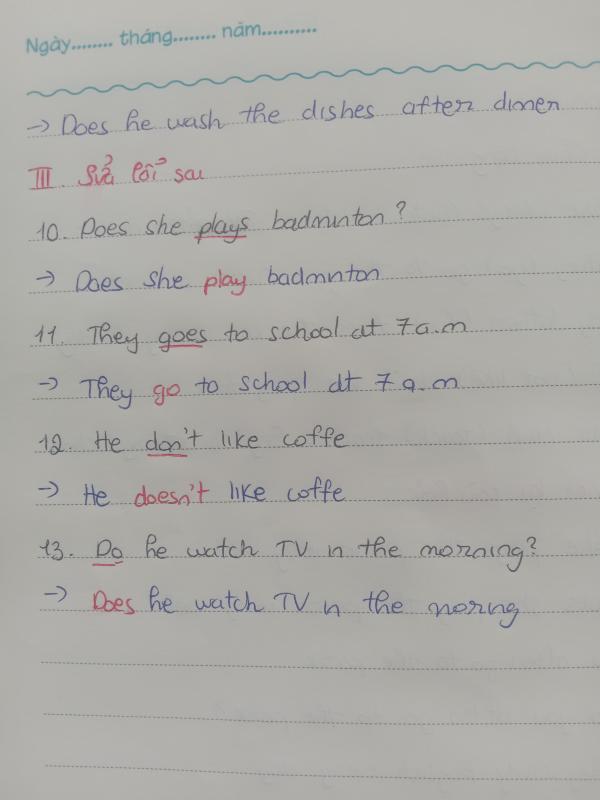 Ngày........ tháng........ năm..........
→ Does he wash the dishes after dinner
III. Sửa lỗi sau
10. Does she plays badminton?
→ Does she play badminton
11. They goes to school at 7a.m
→ They go to school at 7 a.m
12. He don't like coffe
→ He doesn't like coffe
13. Do he watch TV in the morning?
→ Does he watch TV in the moring